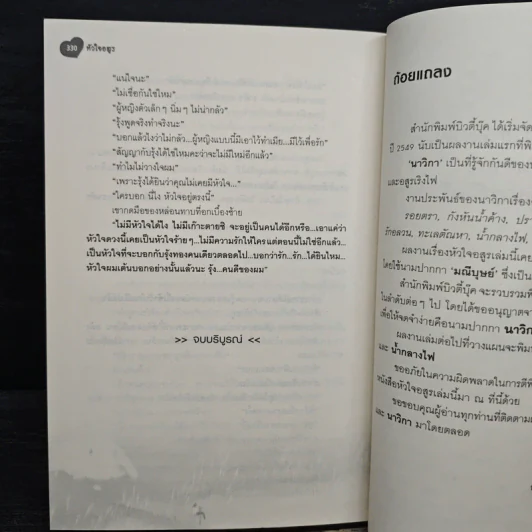 330 หัวใจอสูร
“แน่ใจนะ”
“ไม่เชื่อกันใช่ไหม”
“ผู้หญิงตัวเล็กๆ นิ่มๆ ไม่น่ากลัว”
“รุ้งพูดจริงทำจริงนะ”
“บอกแล้วไงว่าไม่กลัว...ผู้หญิงแบบนี้มีเอาไว้ทำเมีย...มีไว้เพื่อรัก”
“สัญญากับรุ้งได้ไหมคะว่าจะไม่มีใหม่อีกแล้ว”
“ทำไมไม่วางใจผม”
“เพราะรุ้งได้ยินว่าคุณไม่เคยมีหัวใจ...”
“ใครบอก นี่ไง หัวใจอยู่ตรงนี้”
เขากดมือของหล่อนทาบที่อกเบื้องซ้าย
“ไม่มีหัวใจได้ไง ไม่มีเก๊าะตายซิ จะอยู่เป็นคนได้อีกหรือ...เอาแค่ว่า
หัวใจดวงนี้เคยเป็นหัวใจร้ายๆ...ไม่มีความรักให้ใคร แต่ตอนนี้ไม่ใช่อีกแล้ว...
เป็นหัวใจที่จะบอกกับรุ้งทองคนเดียวตลอดไป...บอกว่ารัก...รัก...ได้ยินไหม...
หัวใจผมเต้นบอกอย่างนั้นแล้วนะ รุ้ง...คนดีของผม”
>> จบบริบูรณ์ <<
ถ้อยแถลง
สำนักพิมพ์บิวตี้บุ๊ค ได้เริ่มจัด
ปี 2549 นับเป็นผลงานเล่มแรกที่พิ
‘นาวิกา’ เป็นที่รู้จักกันดีของ
และอสูรเริงไฟ
งานประพันธ์ของนาวิกาเรื่อง
รอยตรา, กังหันน้ำค้าง, ปรา
รักลวน, ทะเลตัณหา, น้ำกลางไฟ,
ผลงานเรื่องหัวใจอสูรเล่มนี้เคย
โดยใช้นามปากกา ‘มณีบุษย์’ ซึ่งเป็น
สำนักพิมพ์บิวตี้บุ๊ค จะรวบรวมพิ
ในลำดับต่อๆ ไป โดยได้ขออนุญาตจา
เพื่อให้จดจำง่ายคือนามปากกา นาวิก
ผลงานเล่มต่อไปที่วางแผนจะพิม
และ น้ำกลางไฟ
ขออภัยในความผิดพลาดในการตีพิ
หนังสือหัวใจอสูรเล่มนี้มา ณ ที่นี้ด้วย
ขอขอบคุณผู้อ่านทุกท่านที่ติดตาม
และ นาวิกา มาโดยตลอด